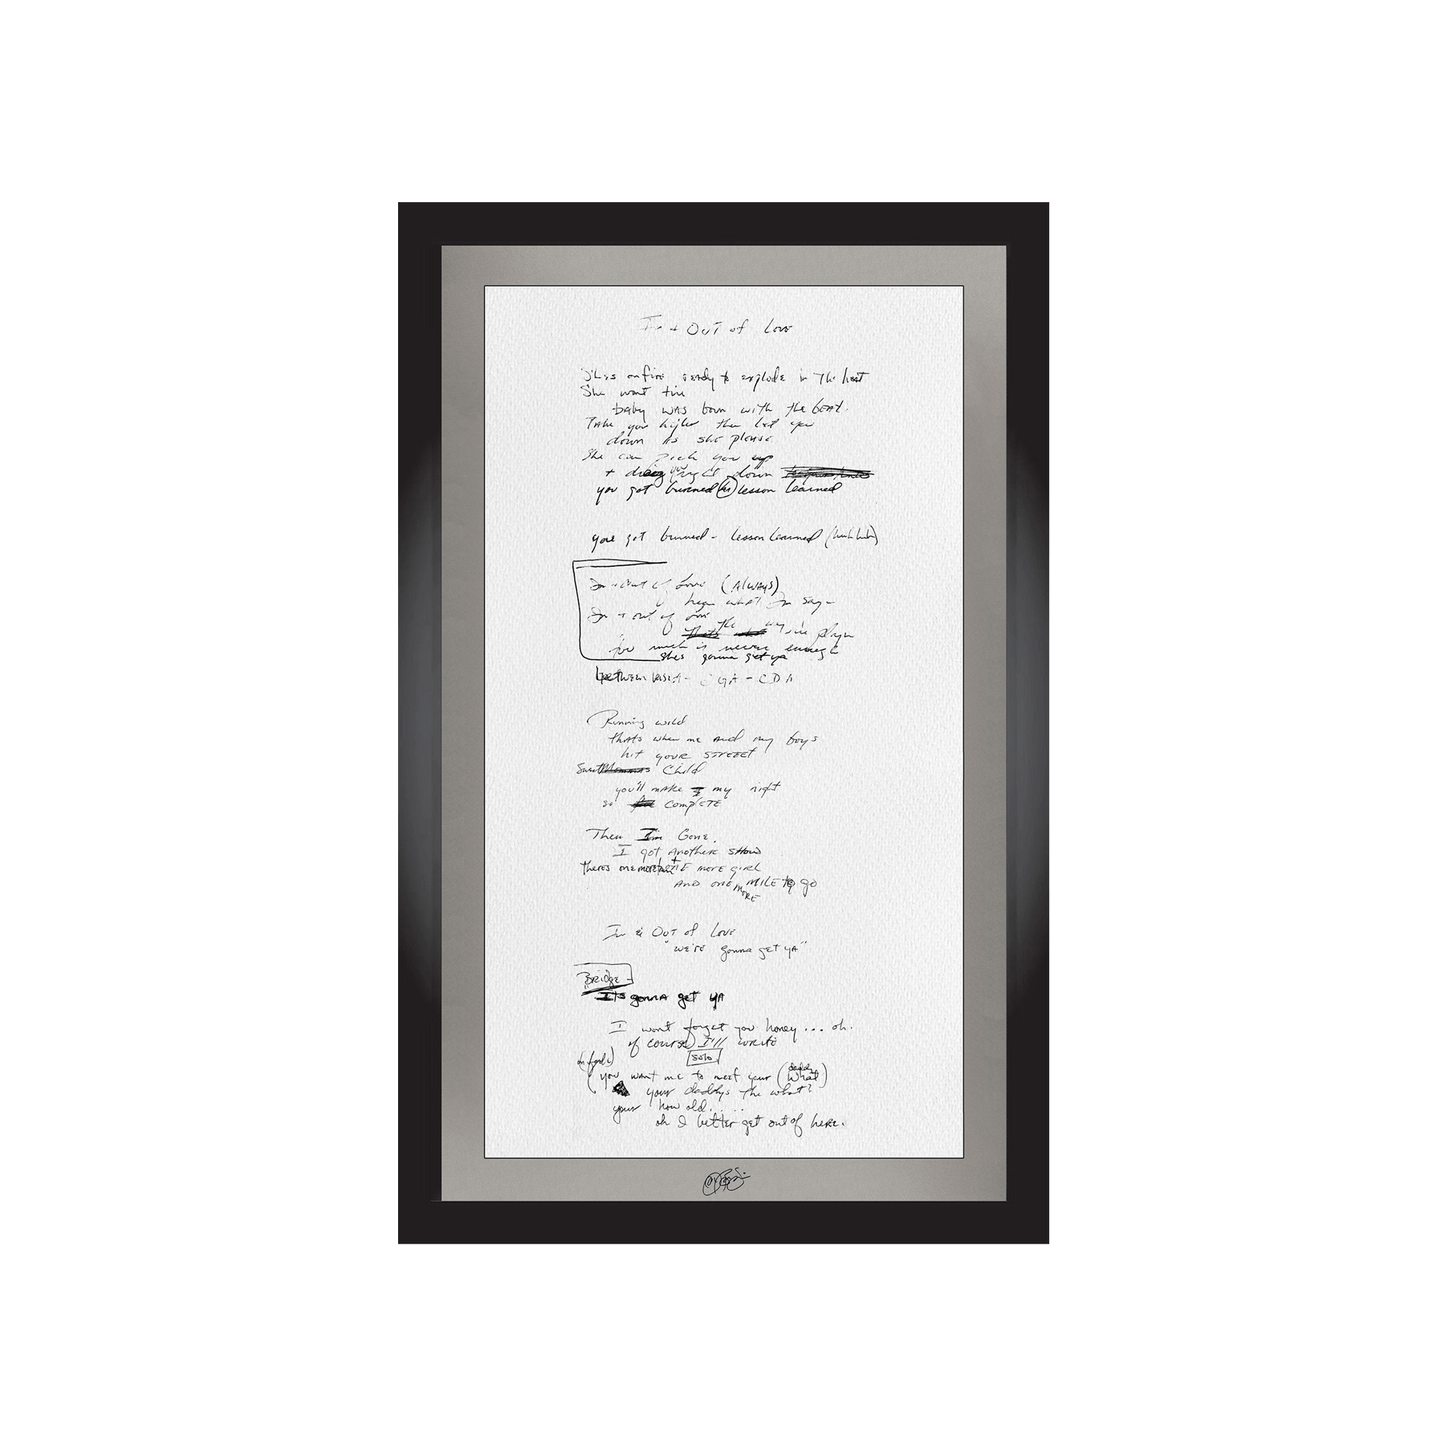 In + Out of Love
She's on fire ready to explode in the heat
She wont tire
baby was born with the beat.
Take you higher then let you
down as she please
She can pick you up
+ drag your ass down
you got burned lesson learned
you got burned - lesson learned
In + out of Love (Always)
hear what I'm say-
In + out of love
the way we play
too much is never enough
she's gonna get ya
between verse - CGA - CDA
Running wild
thats when me and my boys
hit your street
Sweet Child
you'll make my night
so complete
Then I'm Gone.
I got another show
theres one more girl
and one more mile to go
In & Out of Love
"we're gonna get ya"
Bridge -
Its gonna get ya
I wont forget you honey... oh.
of course I'll write
solo
(you want me to meet your what)
your daddys the what?
your how old....
oh I better get out of here.